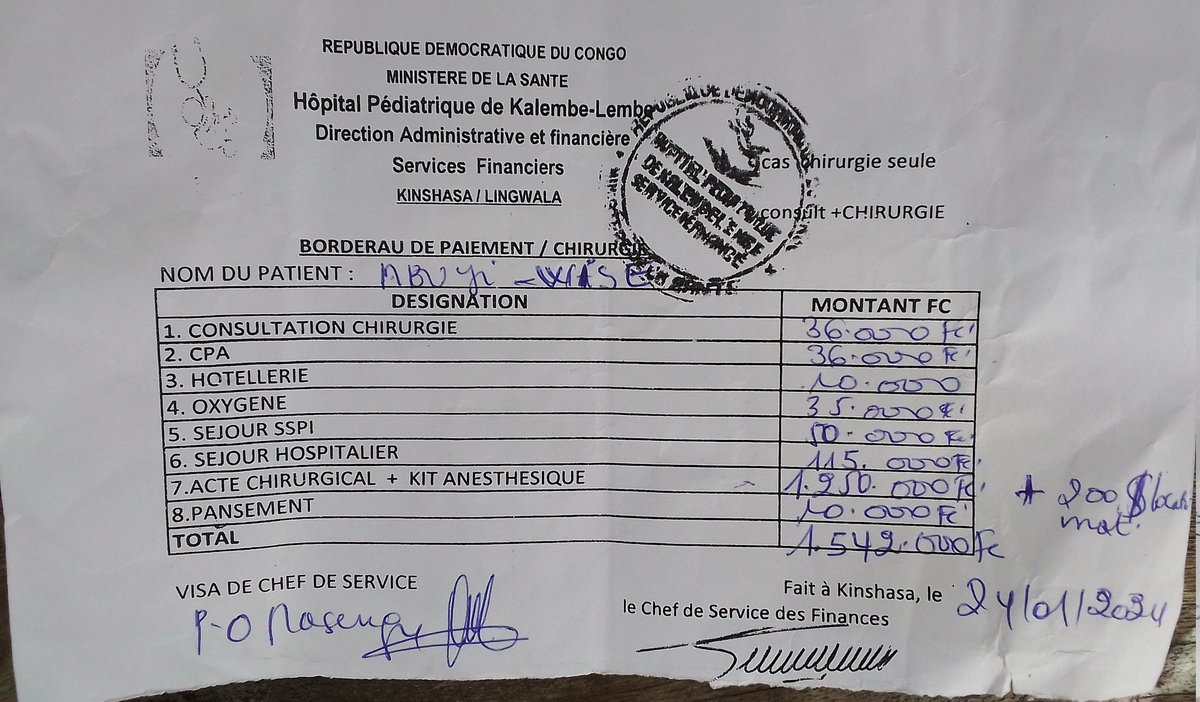 REPUBLIQUE DEMOCRATIQUE DU CONGO
MINISTERE DE LA SANTE
Hôpital Pédiatrique de Kalembe-Lembe
Direction Administrative et financière
Services Financiers
KINSHASA / LINGWALA
cas chirurgie seule
consult +CHIRURGIE
BORDERAU DE PAIEMENT / CHIRURGIE
NOM DU PATIENT : MBUYI
DESIGNATION MONTANT FC
1. CONSULTATION CHIRURGIE 36.000 FC
2. CPA 36.000 FC
3. HOTELLERIE 10.000
4. OXYGENE 35.000 FC
5. SEJOUR SSPI 50.000 FC
6. SEJOUR HOSPITALIER 115.000 FC
7.ACTE CHIRURGICAL + KIT ANESTHESIQUE 1.250.000 FC
+ 200 $
mat.
8.PANSEMENT 10.000 FC
TOTAL 1.542.000 FC
VISA DE CHEF DE SERVICE
P-O
Fait à Kinshasa, le 24/01/2024
le Chef de Service des Finances